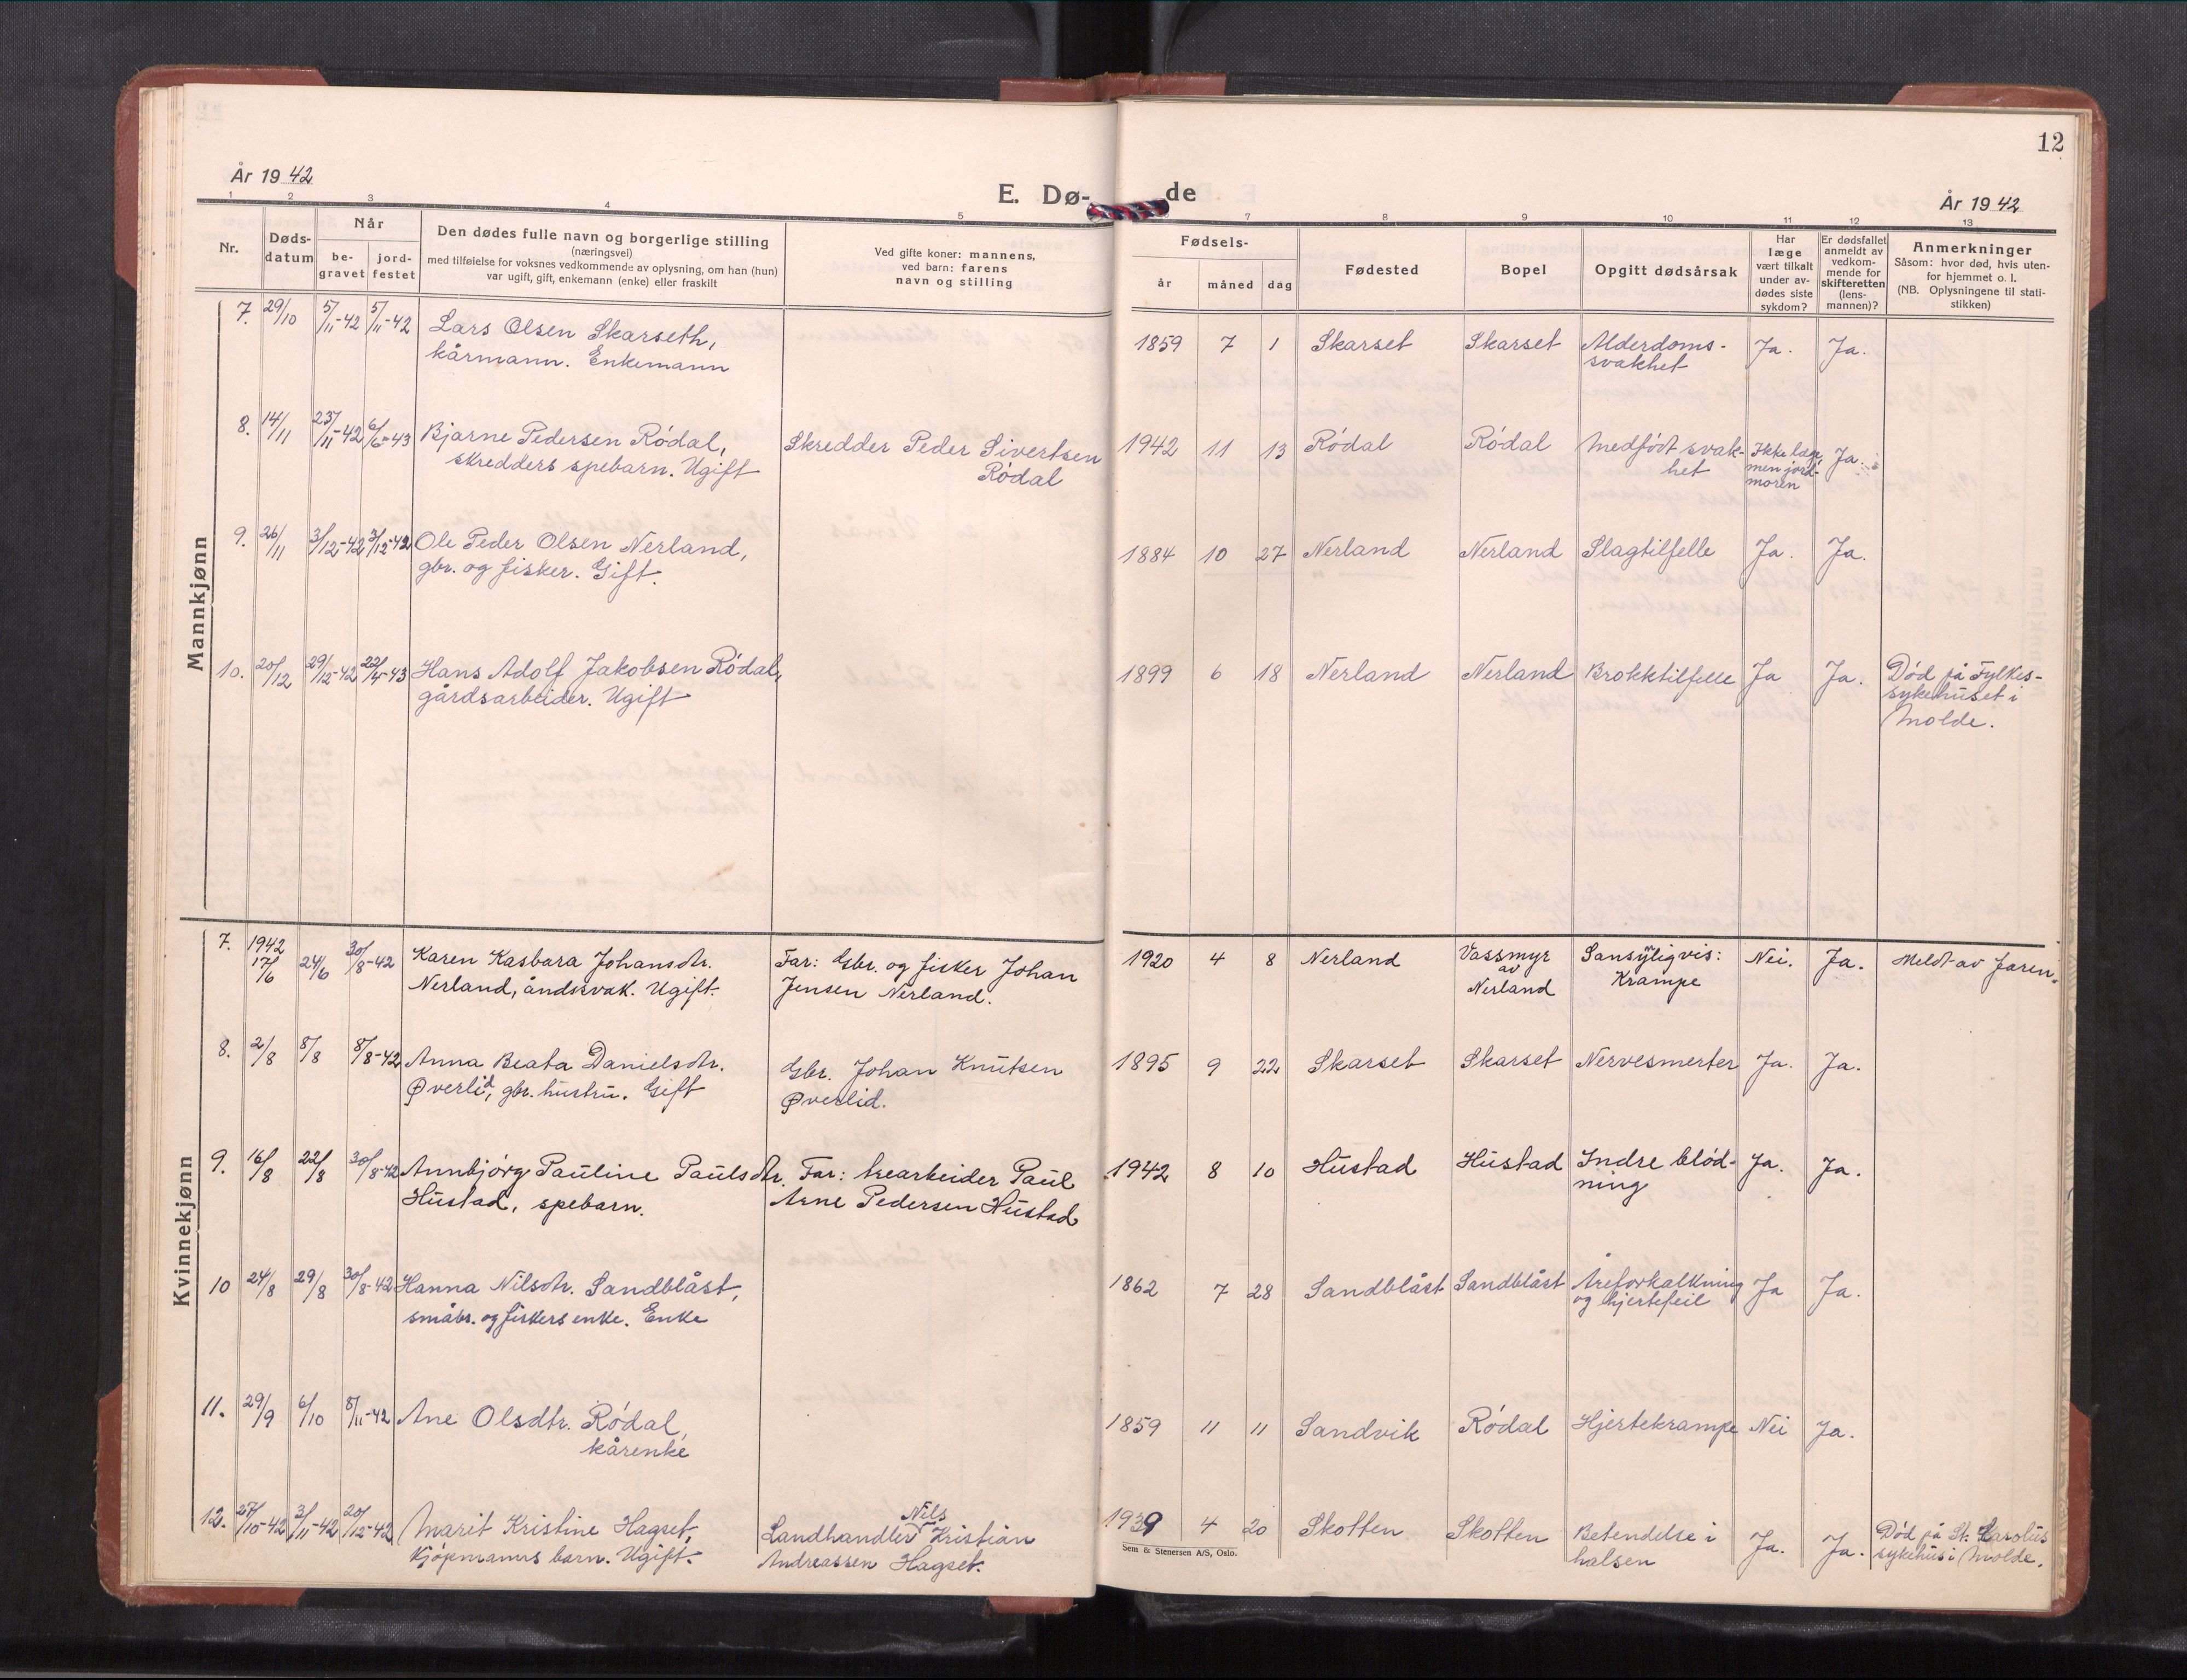 12
År 1942
E. Dø-de
År 1942
1 2 3 4 5 7 8 9 10 11 12 13
Nr.
Døds-
datum
Når
be-
gravet
jord-
festet
Den dødes fulle navn og borgerlige stilling
(næringsvei)
med tilføielse for voksnes vedkommende av oplysning, om han (hun)
var ugift, gift, enkemann (enke) eller fraskilt
Ved gifte koner: mannens,
ved barn: farens
navn og stilling
Fødsels-
år måned dag
Fødested
Bopel
Opgitt dødsårsak
Har
læge
vært tilkalt
under av-
dødes siste
sykdom?
Er dødsfallet
anmeldt av
vedkom-
mende for
skifteretten
(lens-
mannen)?
Anmerkninger
Såsom: hvor død, hvis uten-
for hjemmet o. l.
(NB. Oplysningene til stati-
stikken)
Mannkjønn
7. 29/10 5/11-42 5/11-42 Lars Olsen Skarseth, 1859 7 1 Skarset Skarset Alderdoms- Ja. Ja.
kårmann. Enkemann svakhet
8. 14/11 23/11-42 6/6-43 Bjarne Pedersen Ródal, Skredder Peder Sivertsen 1942 11 13 Ródal Ródal Medfódt svak- Ikke læge, Ja.
skredders spebarn. Ugift Ródal het men jord-
moren
9. 26/11 3/12-42 3/12-42 Ole Peder Olsen Nerland, 1884 10 27 Nerland Nerland Slagtilfelle Ja. Ja.
gbr. og fisker. Gift.
10. 20/12 29/12-42 22/4-43 Hans Adolf Jakobsen Ródal, 1899 6 18 Nerland Nerland Brokktilfelle Ja Ja. Død på Fylkes-
gårdsarbeider. Ugift sykehuset i
Molde.
Kvinnekjønn
7. 1942
17/6 24/6 30/8-42 Karen Kasbara Johansdtr. Far: Gbr. og fisker Johan 1920 4 8 Nerland Vassmyr Sansynligvis: Nei. Ja. Meldt av faren.
Nerland, åndssvak. Ugift. Jensen Nerland. av Krampe
Nerland
8. 2/8 8/8 8/8-42 Anna Beata Danielsdtr. Gbr. Johan Knutsen 1895 9 22 Skarset Skarset Nervesmerter Ja. Ja.
Øverlid, gbr. hustru. Gift Øverlid.
9. 16/8 22/8 30/8-42 Annbjórg Pauline Paulsdtr. Far: trearbeider Paul 1942 8 10 Hustad Hustad Indre blód- Ja. Ja.
Hustad, spebarn. Arne Pedersen Hustad ning
10 24/8 29/8 30/8-42 Hanna Nilsdtr. Sandblåst, 1862 7 28 Sandblåst Sandblåst Åreforkalkning Ja Ja.
småbr. og fiskers enke. Enke og hjertefeil
11. 29/9 6/10 8/11-42 Ane Olsdtr. Ródal, 1859 11 11 Sandvik Ródal Hjertekrampe Nei Ja.
kårenke
Nels
12. 27/10-42 3/11-42 20/12-42 Marit Kristine Hagset, Landhandler Kristian 1939 4 20 Skotten Skotten Betendelse i Ja. Ja. Død på St. Carolus
kjópmanns barn. Ugift. Andreassen Hagset. halsen sykehus i Molde.
Sem & Stenersen A/S, Oslo.